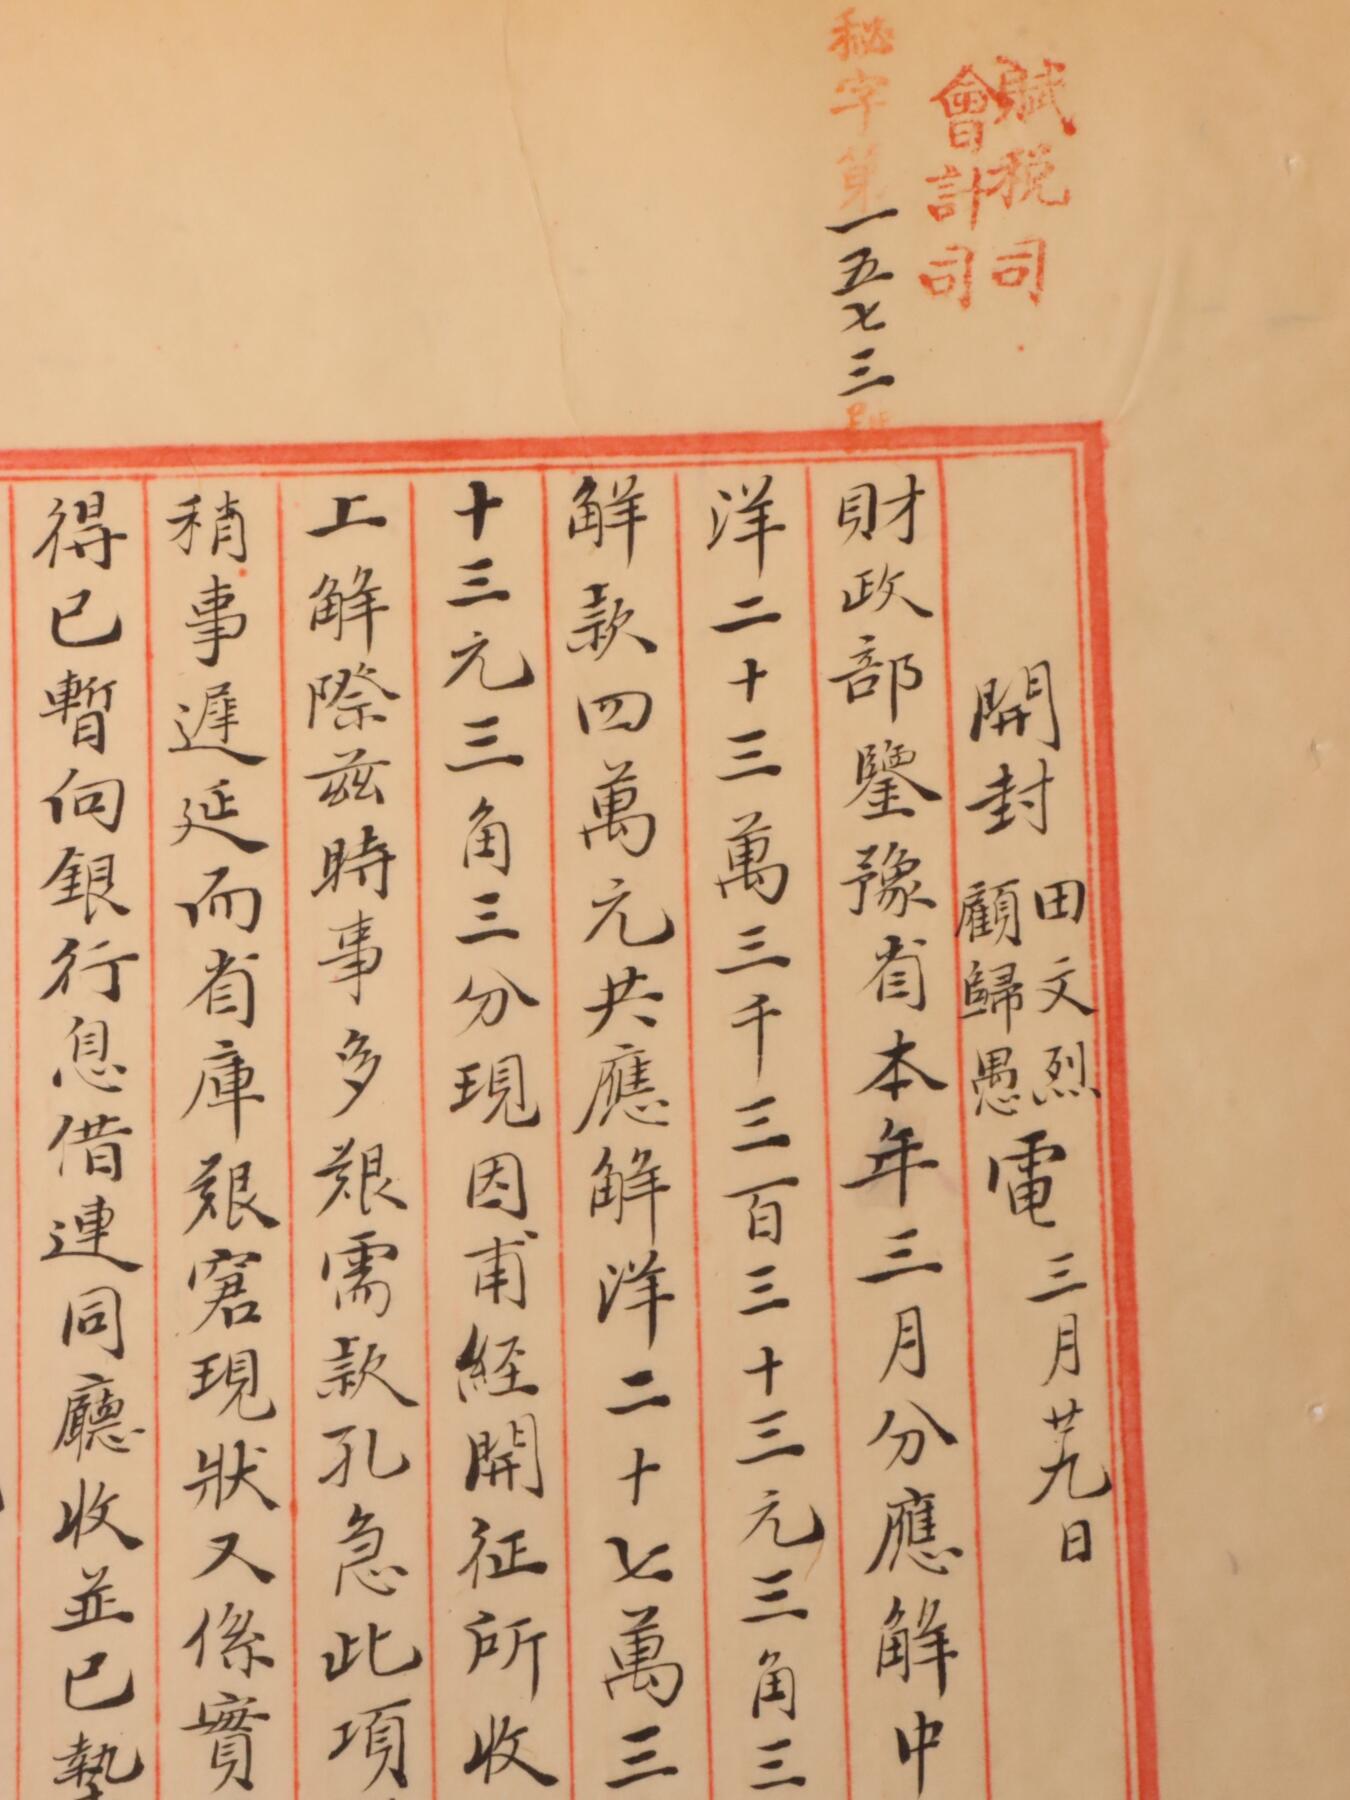 賦稅司
會計司
秘字第一五七三號
開封 田文烈 顧歸愚 電 三月廿九日
財政部鑒豫省本年三月分應解中
洋二十三萬三千三百三十三元三角三
解款四萬元共應解洋二十七萬三
十三元三角三分現因甫經開征所收
上解際茲時事多艱需款孔急此項
稍事遲延而省庫艱窘現狀又係實
得已暫向銀行息借連同廳收並已